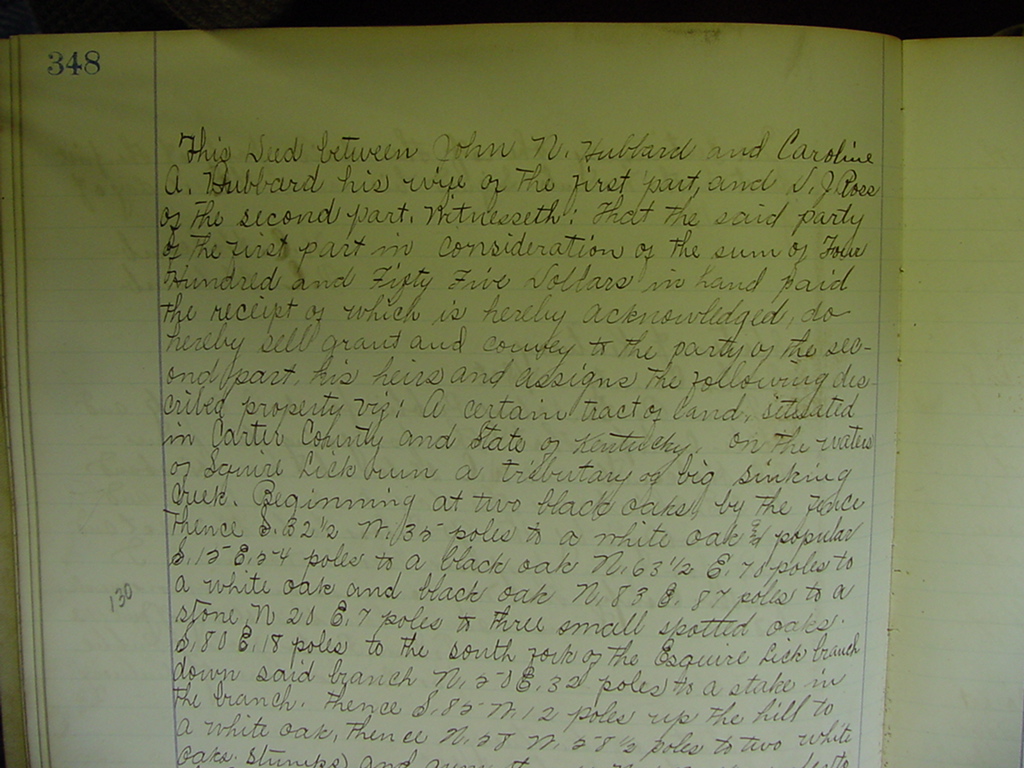 348
This Deed between John N. Hubbard and Caroline
A. Hubbard his wife of the first part, and J. Ross
of the second part. Witnesseth: That the said party
of the first part in consideration of the sum of Four
Hundred and Fifty Five Dollars in hand paid
the receipt of which is hereby acknowledged, do
hereby sell grant and convey to the party of the sec-
ond part, his heirs and assigns the following des
cribed property viz: A certain tract of land, situated
in Carter County and State of Kentucky, on the waters
of Squire Lick run a tributary of big sinking
Creek. Beginning at two black oaks, by the fence
thence S. 82 1/2 W. 35 poles to a white oak & popular
S. 15 E. 54 poles to a black oak N. 63 1/2 E. 70 poles to
a white oak and black oak N. 83 E. 87 poles to a
130
stone, N 20 E. 7 poles to three small spotted oaks.
S. 80 E. 18 poles to the south fork of the Esquire Lick branch
down said branch N. 50 E. 32 poles to a stake in
the branch. thence S. 85 W. 12 poles up the hill to
a white oak, thence N. 58 W. 58 1/2 poles to two white
oaks. stumps) and